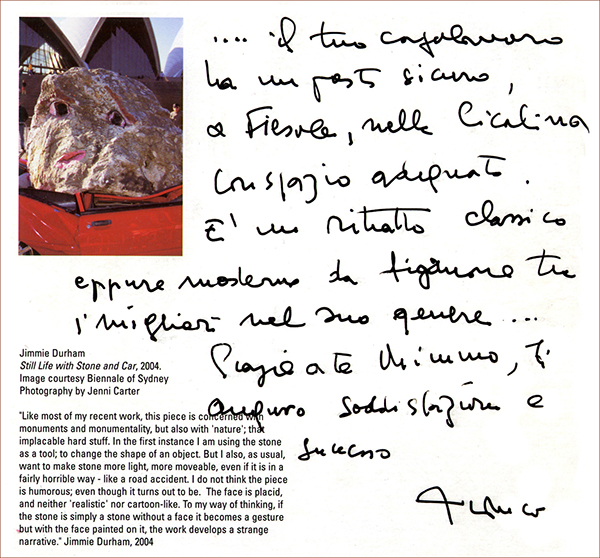 .... il tuo capolavoro
ha un posto sicuro,
a Fiesole, nella Cicalina
con spazio adeguato.
E' un ritratto classico
eppure moderno da figurare tra
i migliori nel suo genere ...
Grazie a te Mimmo, ti
auguro soddisfazioni e
successo
Jimmie Durham
Still Life with Stone and Car, 2004.
Image courtesy Biennale of Sydney
Photography by Jenni Carter
"Like most of my recent work, this piece is concerned with
monuments and monumentality, but also with 'nature'; that
implacable hard stuff. In the first instance I am using the stone
as a tool; to change the shape of an object. But I also, as usual,
want to make stone more light, more moveable, even if it is in a
fairly horrible way - like a road accident. I do not think the piece
is humorous; even though it turns out to be. The face is placid,
and neither 'realistic' nor cartoon-like. To my way of thinking, if
the stone is simply a stone without a face it becomes a gesture
but with the face painted on it, the work develops a strange
narrative." Jimmie Durham, 2004